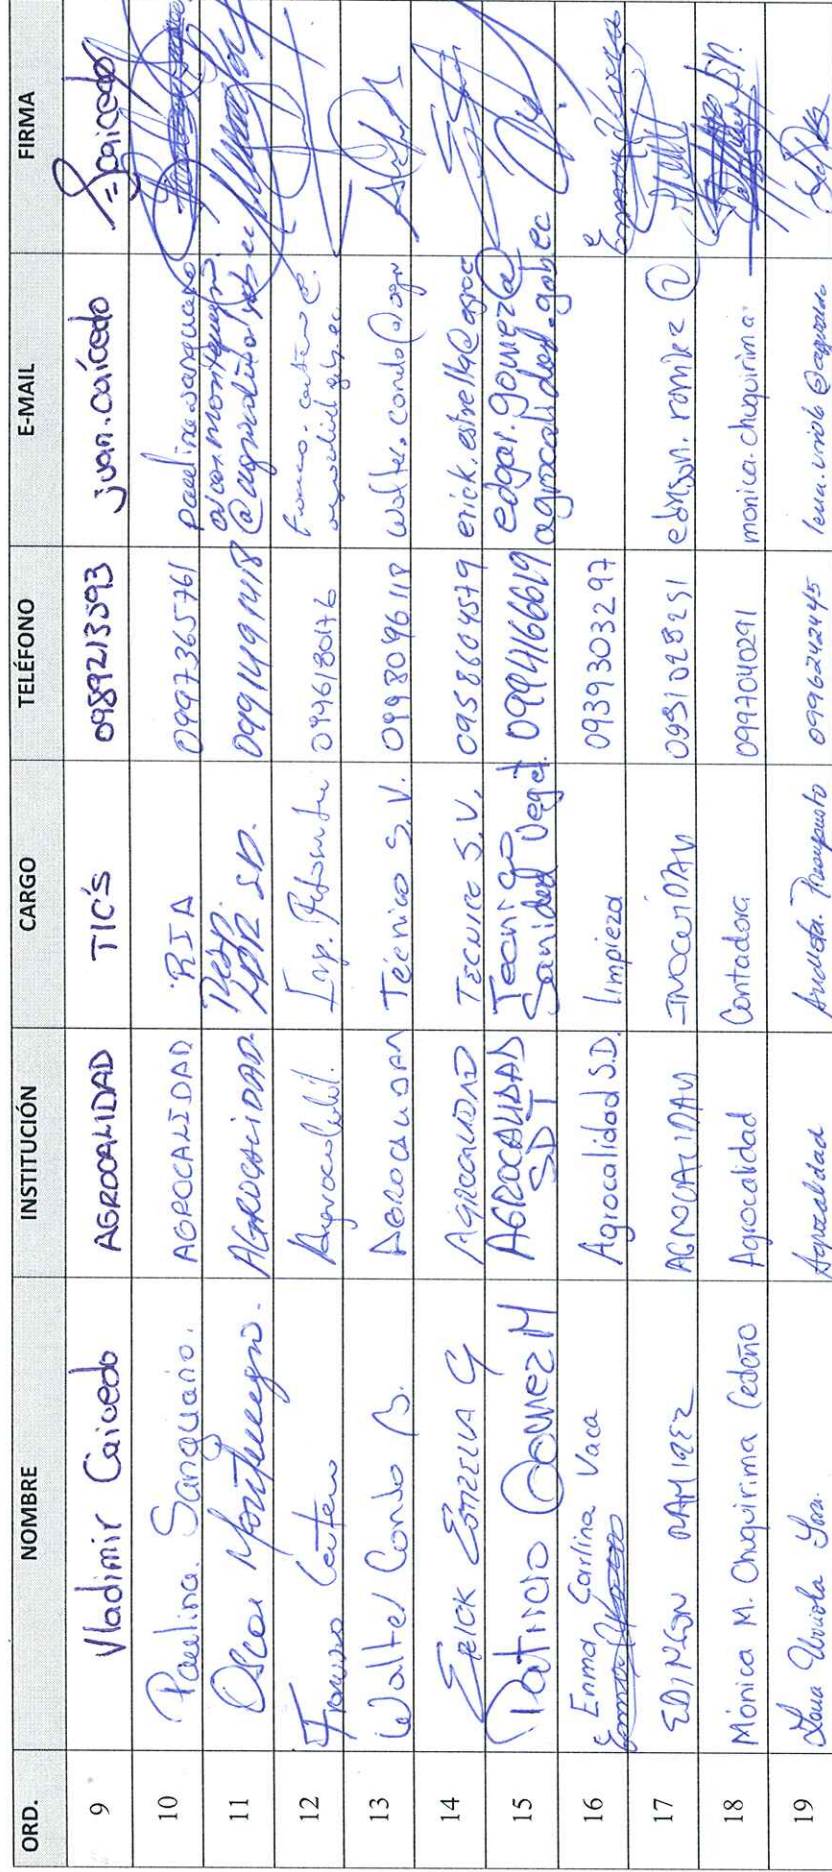 ORD. NOMBRE INSTITUCIÓN CARGO TELÉFONO E-MAIL FIRMA
9 Vladimir Caicedo AGROCALIDAD TIC'S 0989213593 juan.caicedo Jcaicedo
10 Paulina Sanguano. AGROCALIDAD RIA 0997365761 paulina.sanguano
11 Oscar Montenegro. AGROCALIDAD Resp. LDR SD. 0991491418 oscar.montenegro @agrocalidad.gob.ec
12 Franco Centeno Agrocalidad. 
13 Walter Condo B. AGROCALIDAD Técnico S.V. 0998096118 walter.condo@agr
14 ERICK ESTRELLA G AGROCALIDAD TECNICO S.V. 0958604579 erick.estrella@agroc
15 Patricio Gómez M AGROCALIDAD SDT Tecnico Sanidad Veget. 0994166619 edgar.gomez@ agrocalidad.gob.ec
16 Enma Carlina Vaca Agrocalidad S.D. limpieza 0939303297
17 EDINSON RAMIREZ AGROCALIDAD INOCUIDAD 0931028251 edinson.ramirez @
18 Mónica M. Chuquirima Cedeño Agrocalidad Contadora 0997040291 monica.chuquirima.
19 Agrocalidad Analista. Presupuesto 0996242445